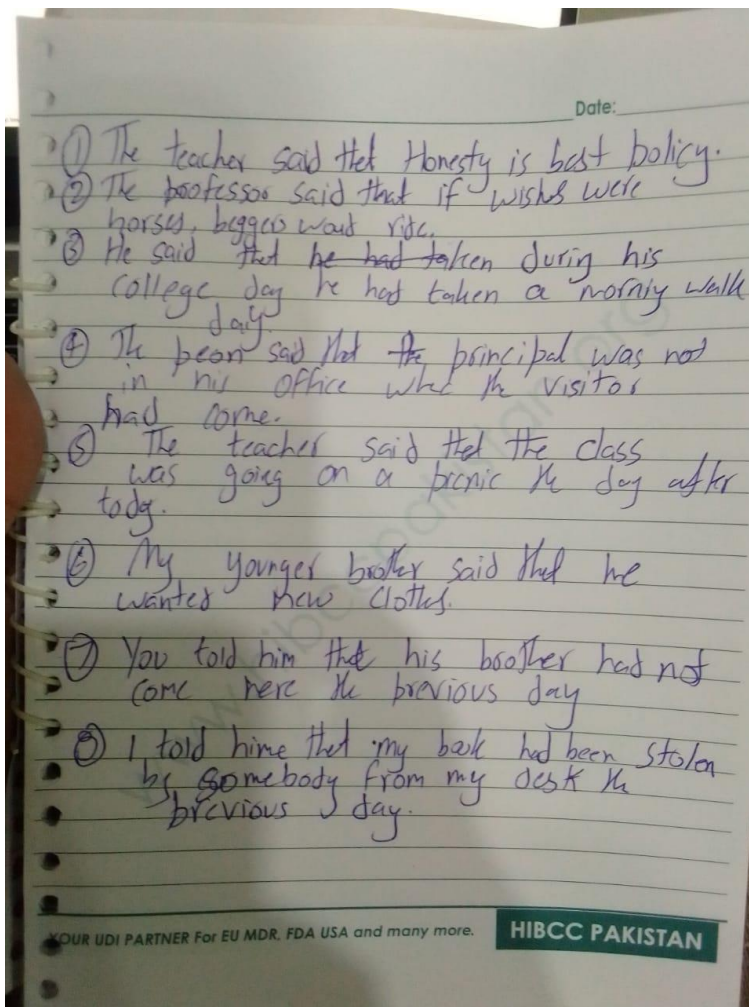 Date:
① The teacher said thet Honesty is best policy.
② The professor said that if wishes were
horses, beggers woud ride.
③ He said that he had taken during his
college day he had taken a morniy walk
day.
④ The peon said that the principal was not
in his office when the visitor
had come.
⑤ The teacher said thet the class
was going on a picnic the day after
today.
⑥ My younger brother said that he
wanted new clothes.
⑦ You told him that his brother had not
come here the previous day
⑧ I told hime thet my book had been stolen
by somebody from my desk the
previous day.
www.hibccpakistan.org
YOUR UDI PARTNER For EU MDR, FDA USA and many more. HIBCC PAKISTAN